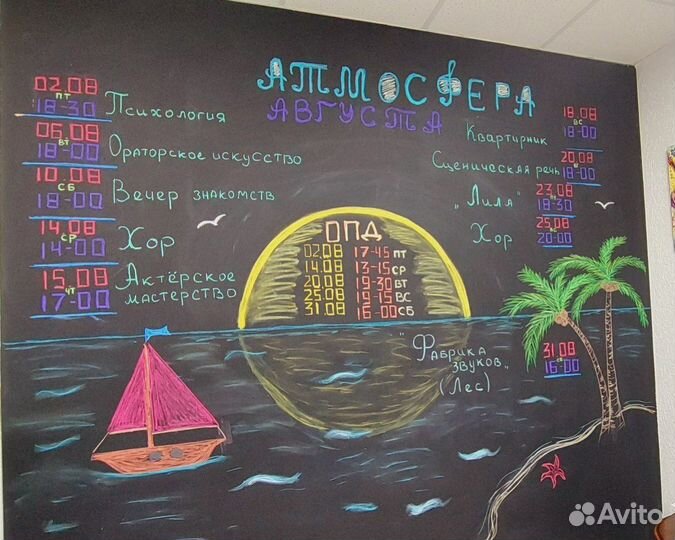 АТМОСФЕРА
АВГУСТА
02.08
ПТ
18-30
Психология
06.08
ВТ
18-00
Ораторское искусство
10.08
СБ
18-00
Вечер знакомств
14.08
СР
14-00
Хор
15.08
ЧТ
17-00
Актёрское
мастерство
ОПД
02.08 17-45 ПТ
14.08 13-15 СР
20.08 19-30 ВТ
25.08 19-15 ВС
31.08 16-00 СБ
Квартирник
18.08
ВС
18-00
Сценическая речь
20.08
18-00
„Лиля"
23.08
18-30
Хор
25.08
20-00
"Фабрика
звуков„
(Лес)
31.08
16-00
Avito